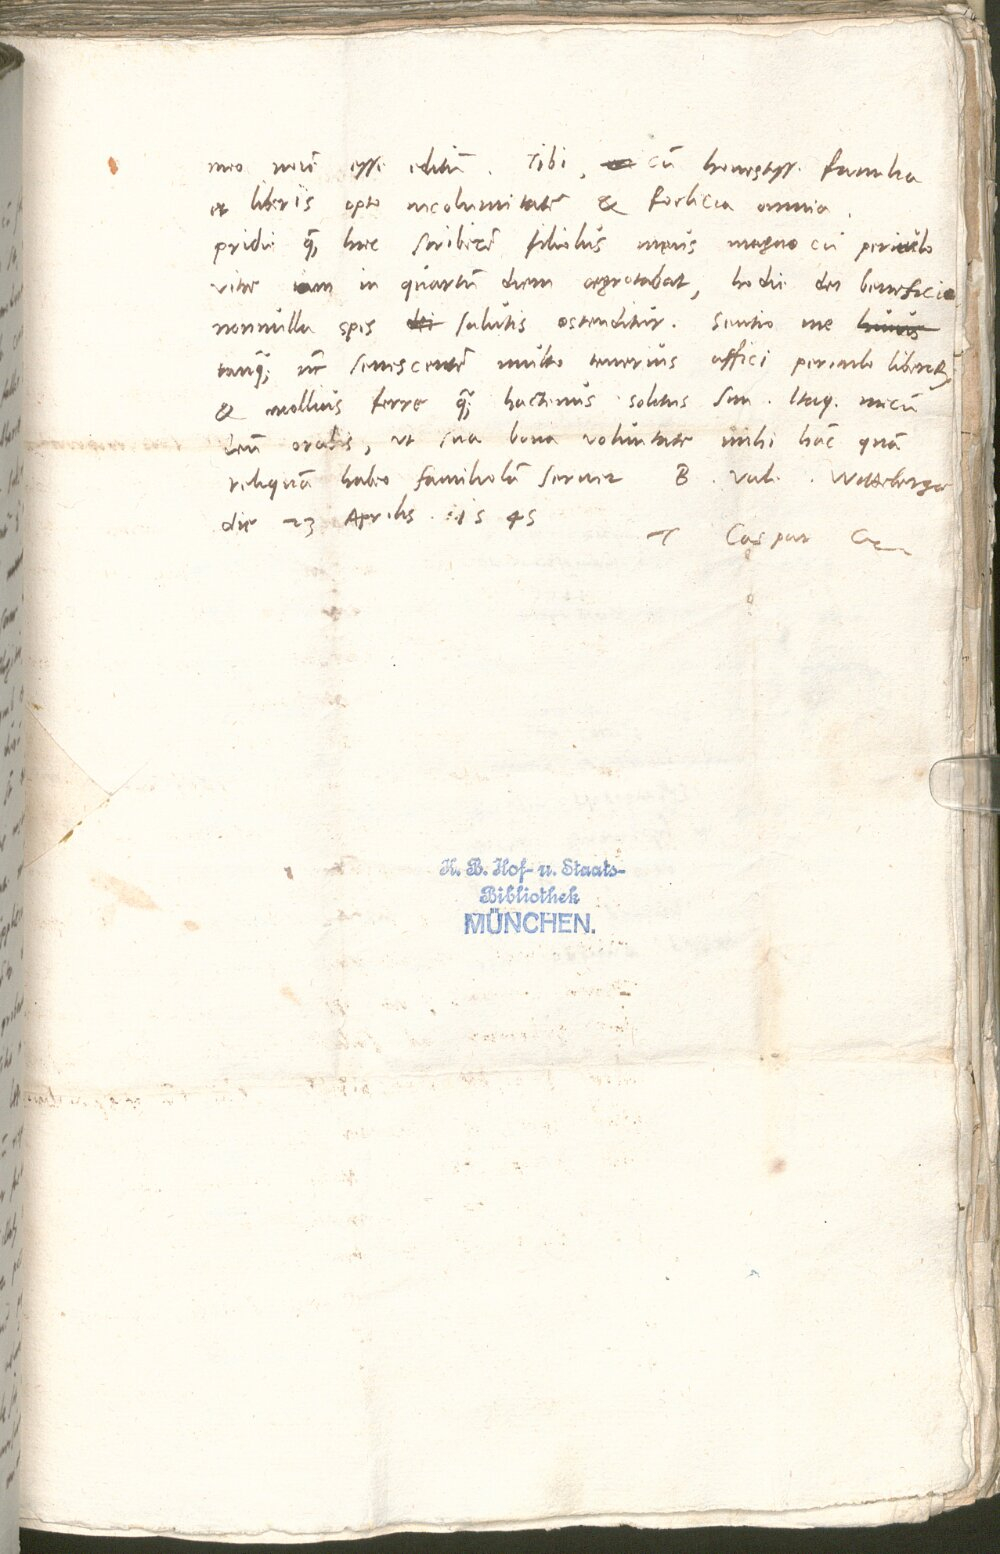 meo noīe esse editū. Tibi, cū honestiss. familia
et liberis opto incolumitatē & foelicia omnia.
pridie q̄, haec scriberē filiolus meus magno cū periculo
vitae iam in quartū diem aegrotabat, hodie dei beneficio
nonnulla spes dei salutis ostenditur. Sentio me huius
tanq̄; senescentē multo tenerius affici periculo liberorū,
& mollius ferre q̄; hactenus solitus sim. Itaq. mecū
deū orabis, ut sua bona voluntate mihi hāc quā
reliquā habeo familiolā servet B. Vale. Witteberge
die 23 Aprilis 1545
T Caspar
K. B. Hof- u. Staats-
Bibliothek
MÜNCHEN.